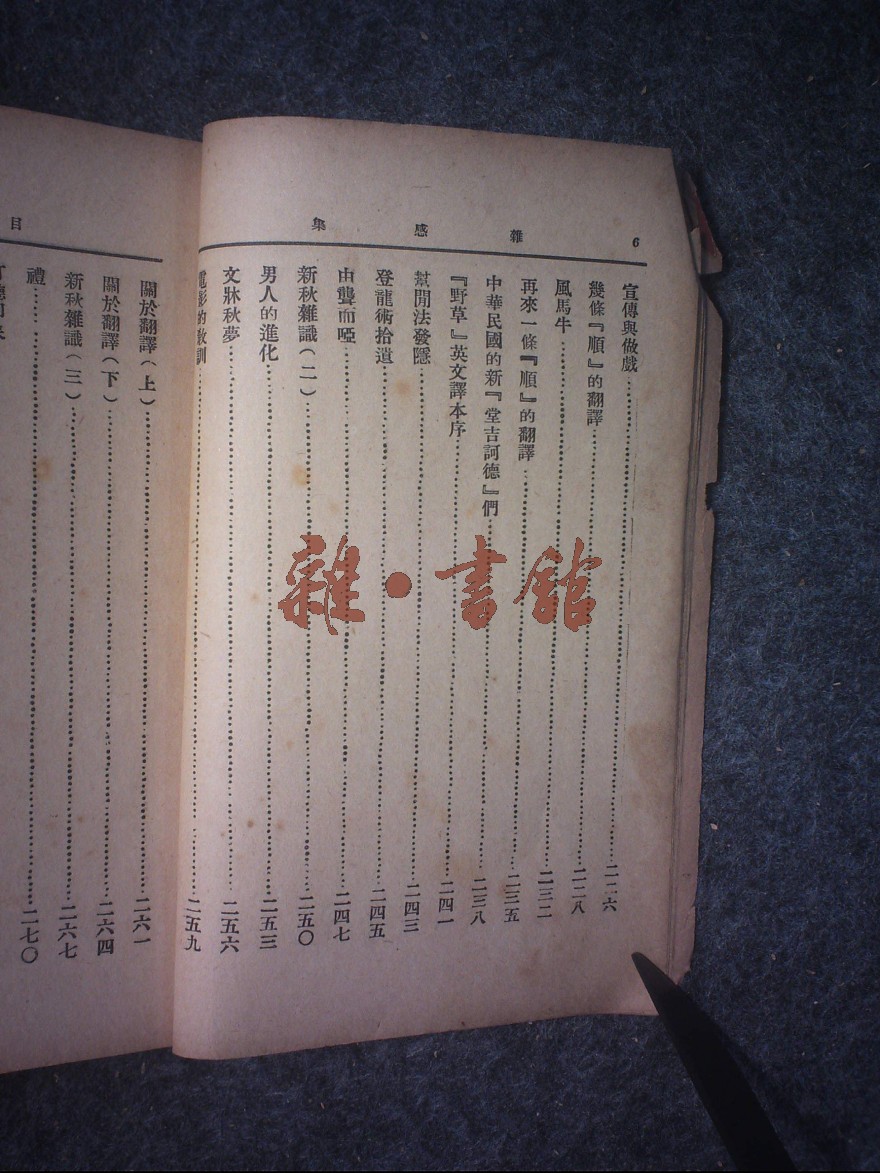 6 雜感集
宣傳與做戲……二二六
幾條『順』的翻譯……二二八
風馬牛……二三二
再來一條『順』的翻譯……二三五
中華民國的新『堂吉訶德』們……二三八
『野草』英文譯本序……二四一
幫閒法發隱……二四三
登龍術拾遺……二四五
由聾而啞……二四七
新秋雜識(二)……二五〇
男人的進化……二五三
文牀秋夢……二五六
電影的教訓……二五九
目
關於翻譯(上)……二六一
關於翻譯(下)……二六四
新秋雜識(三)……二六七
禮……二七〇
雜·書館